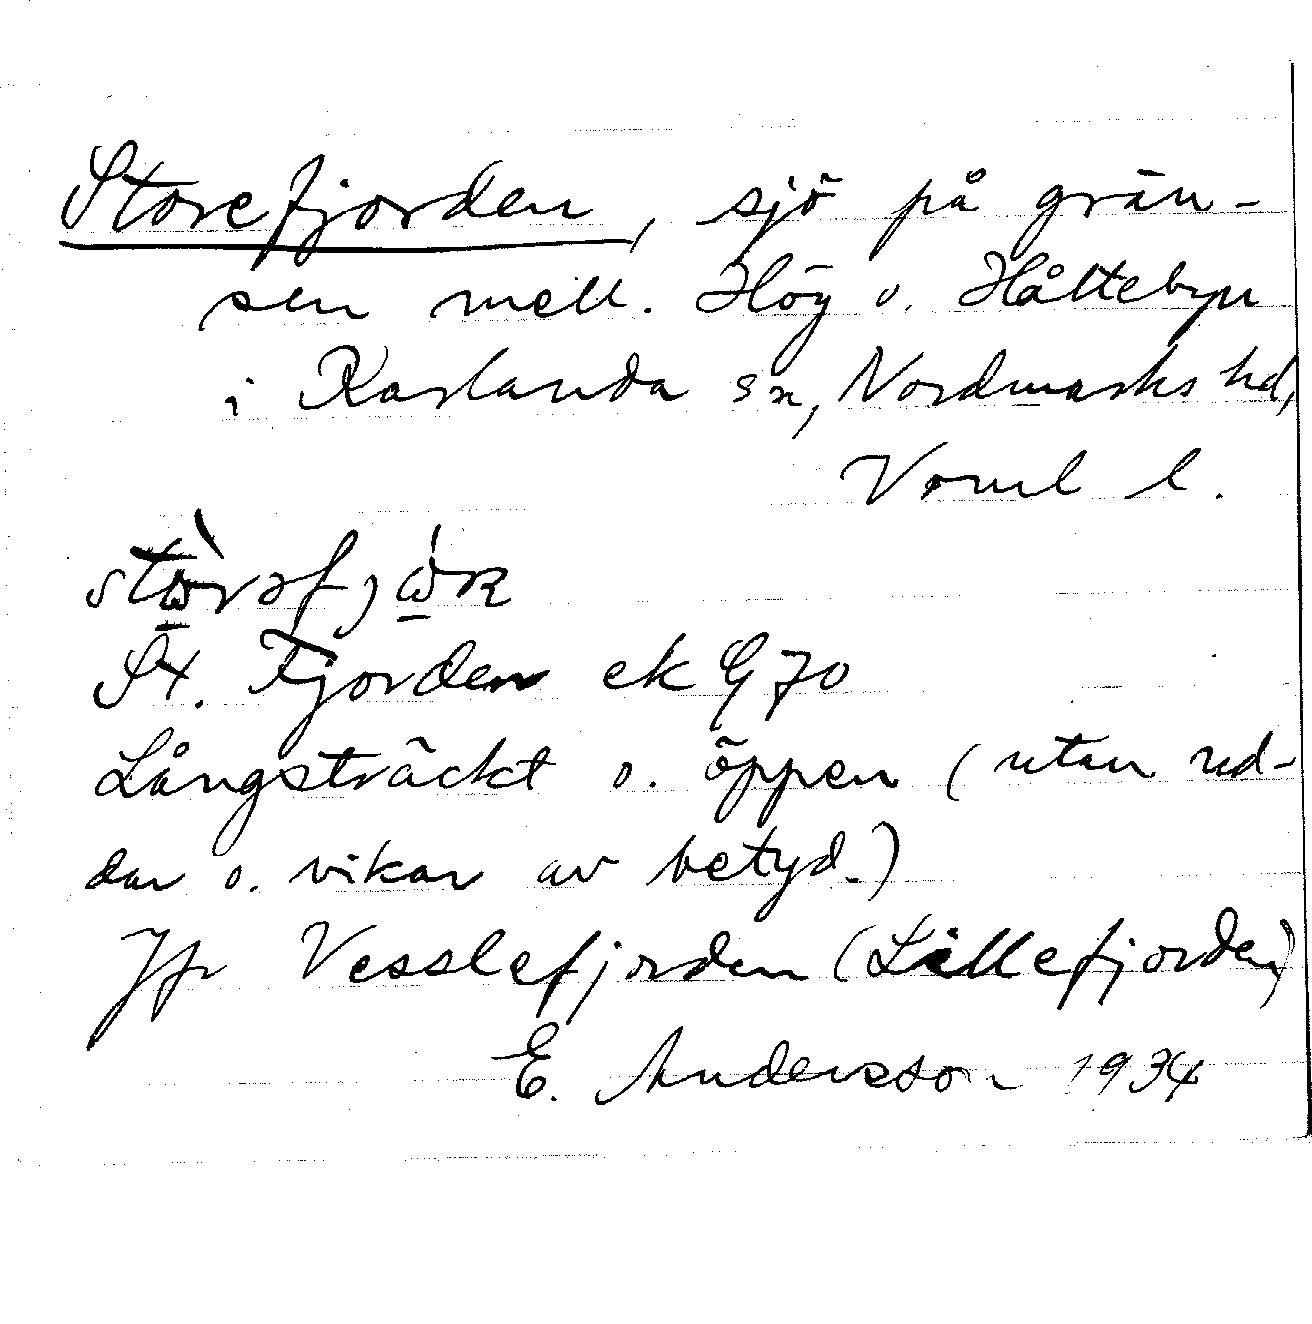 Storefjorden, sjö på grän-
sen mell. Hög o. Håltebyn
i Karlanda sn, Nordmarks hd,
Värml l.
St. Fjorden ek G 70
Långsträckt o. öppen (utan ud-
dar o. vikar av betyd.)
Jfr Vesslefjorden (Lillefjorden)
E. Andersson 1934